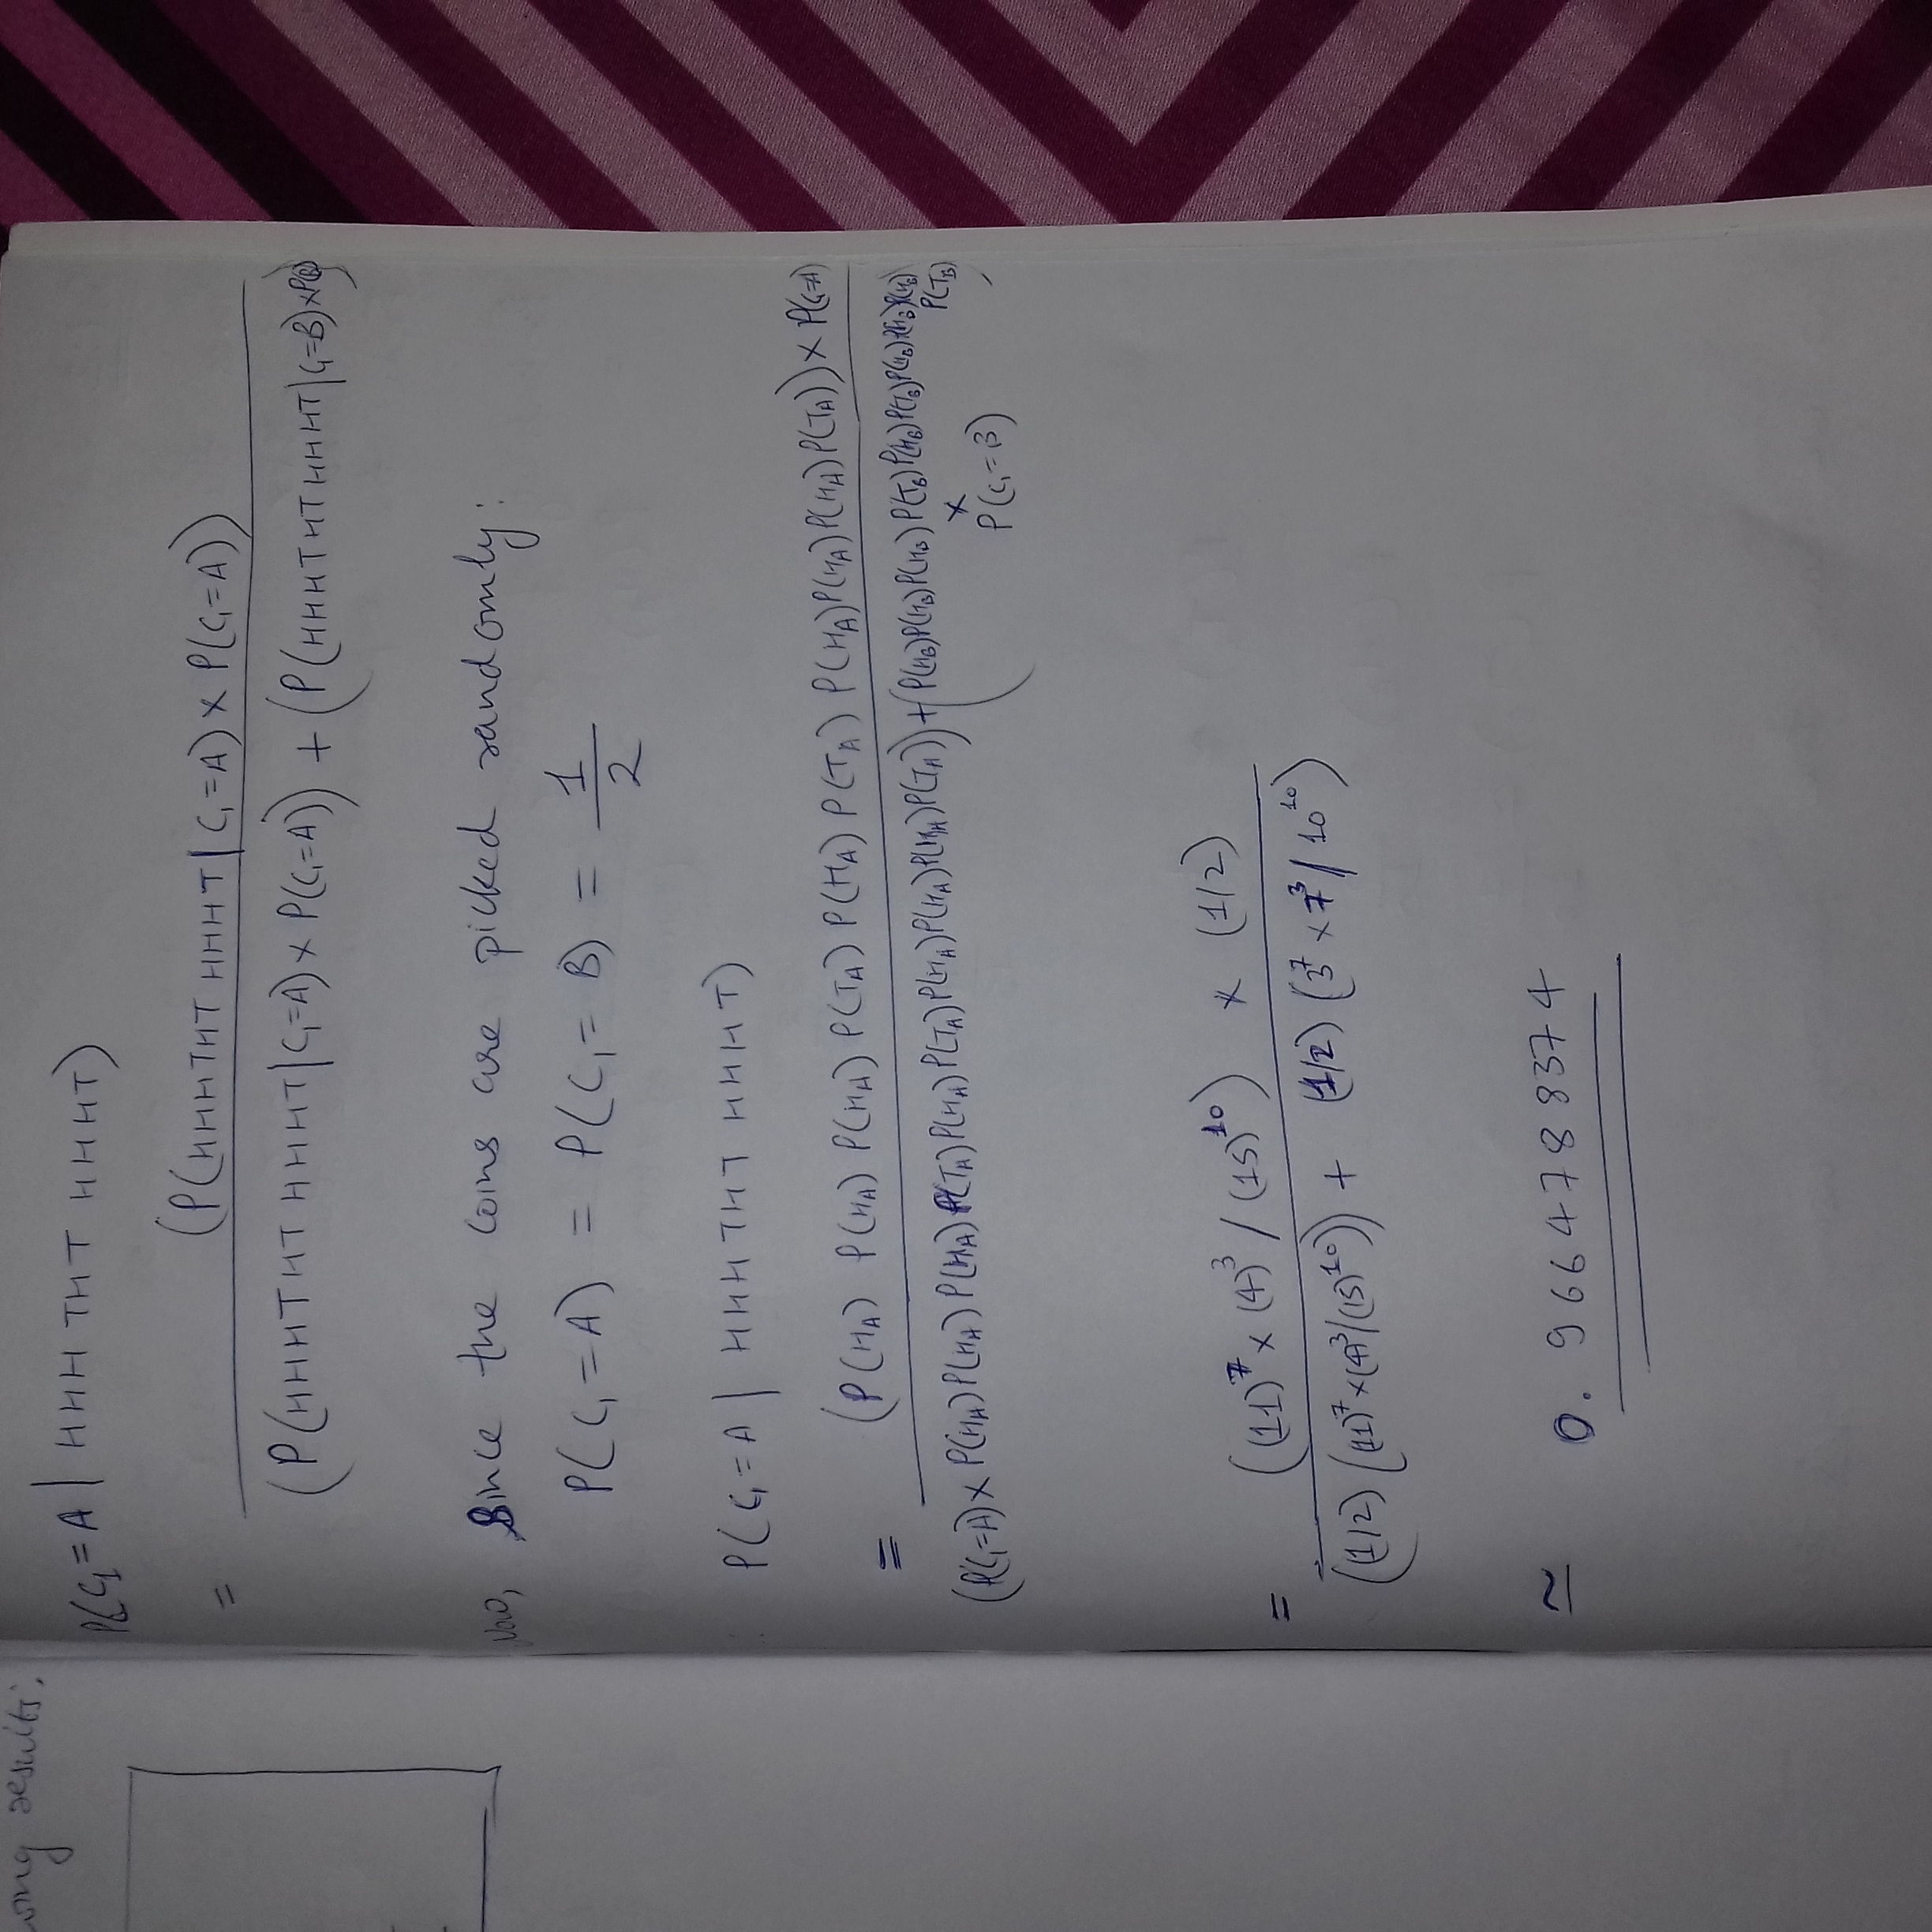 wing results:
P(C₁=A | HHH THT HHHT)
= (P(HHHTHT HHHT | C₁=A) × P(C₁=A))
(P(HHHTHT HHHT | C₁=A) × P(C₁=A)) + (P(HHHTHTHHHT | C₁=B) × P(B))
Now, Since the coins are picked randomly:
P(C₁=A) = P(C₁=B) = 1/2
P(C₁=A | HHH THT HHHT)
= (P(H_A) P(H_A) P(H_A) P(T_A) P(H_A) P(T_A) P(H_A) P(H_A) P(H_A) P(T_A)) × P(C₁=A)
(P(C₁=A) × P(H_A) P(H_A) P(H_A) P(T_A) P(H_A) P(T_A) P(H_A) P(H_A) P(H_A) P(T_A)) + (P(H_B) P(H_B) P(H_B) P(T_B) P(H_B) P(T_B) P(H_B) P(H_B) P(H_B)
P(T_B)
×
P(C₁=B))
= ((11)⁷ × (4)³ / (15)¹⁰) × (1/2)
((1/2) ((11)⁷ × (4)³/(15)¹⁰)) + (1/2) (3⁷ × 7³ / 10¹⁰)
≃ 0.9664788374